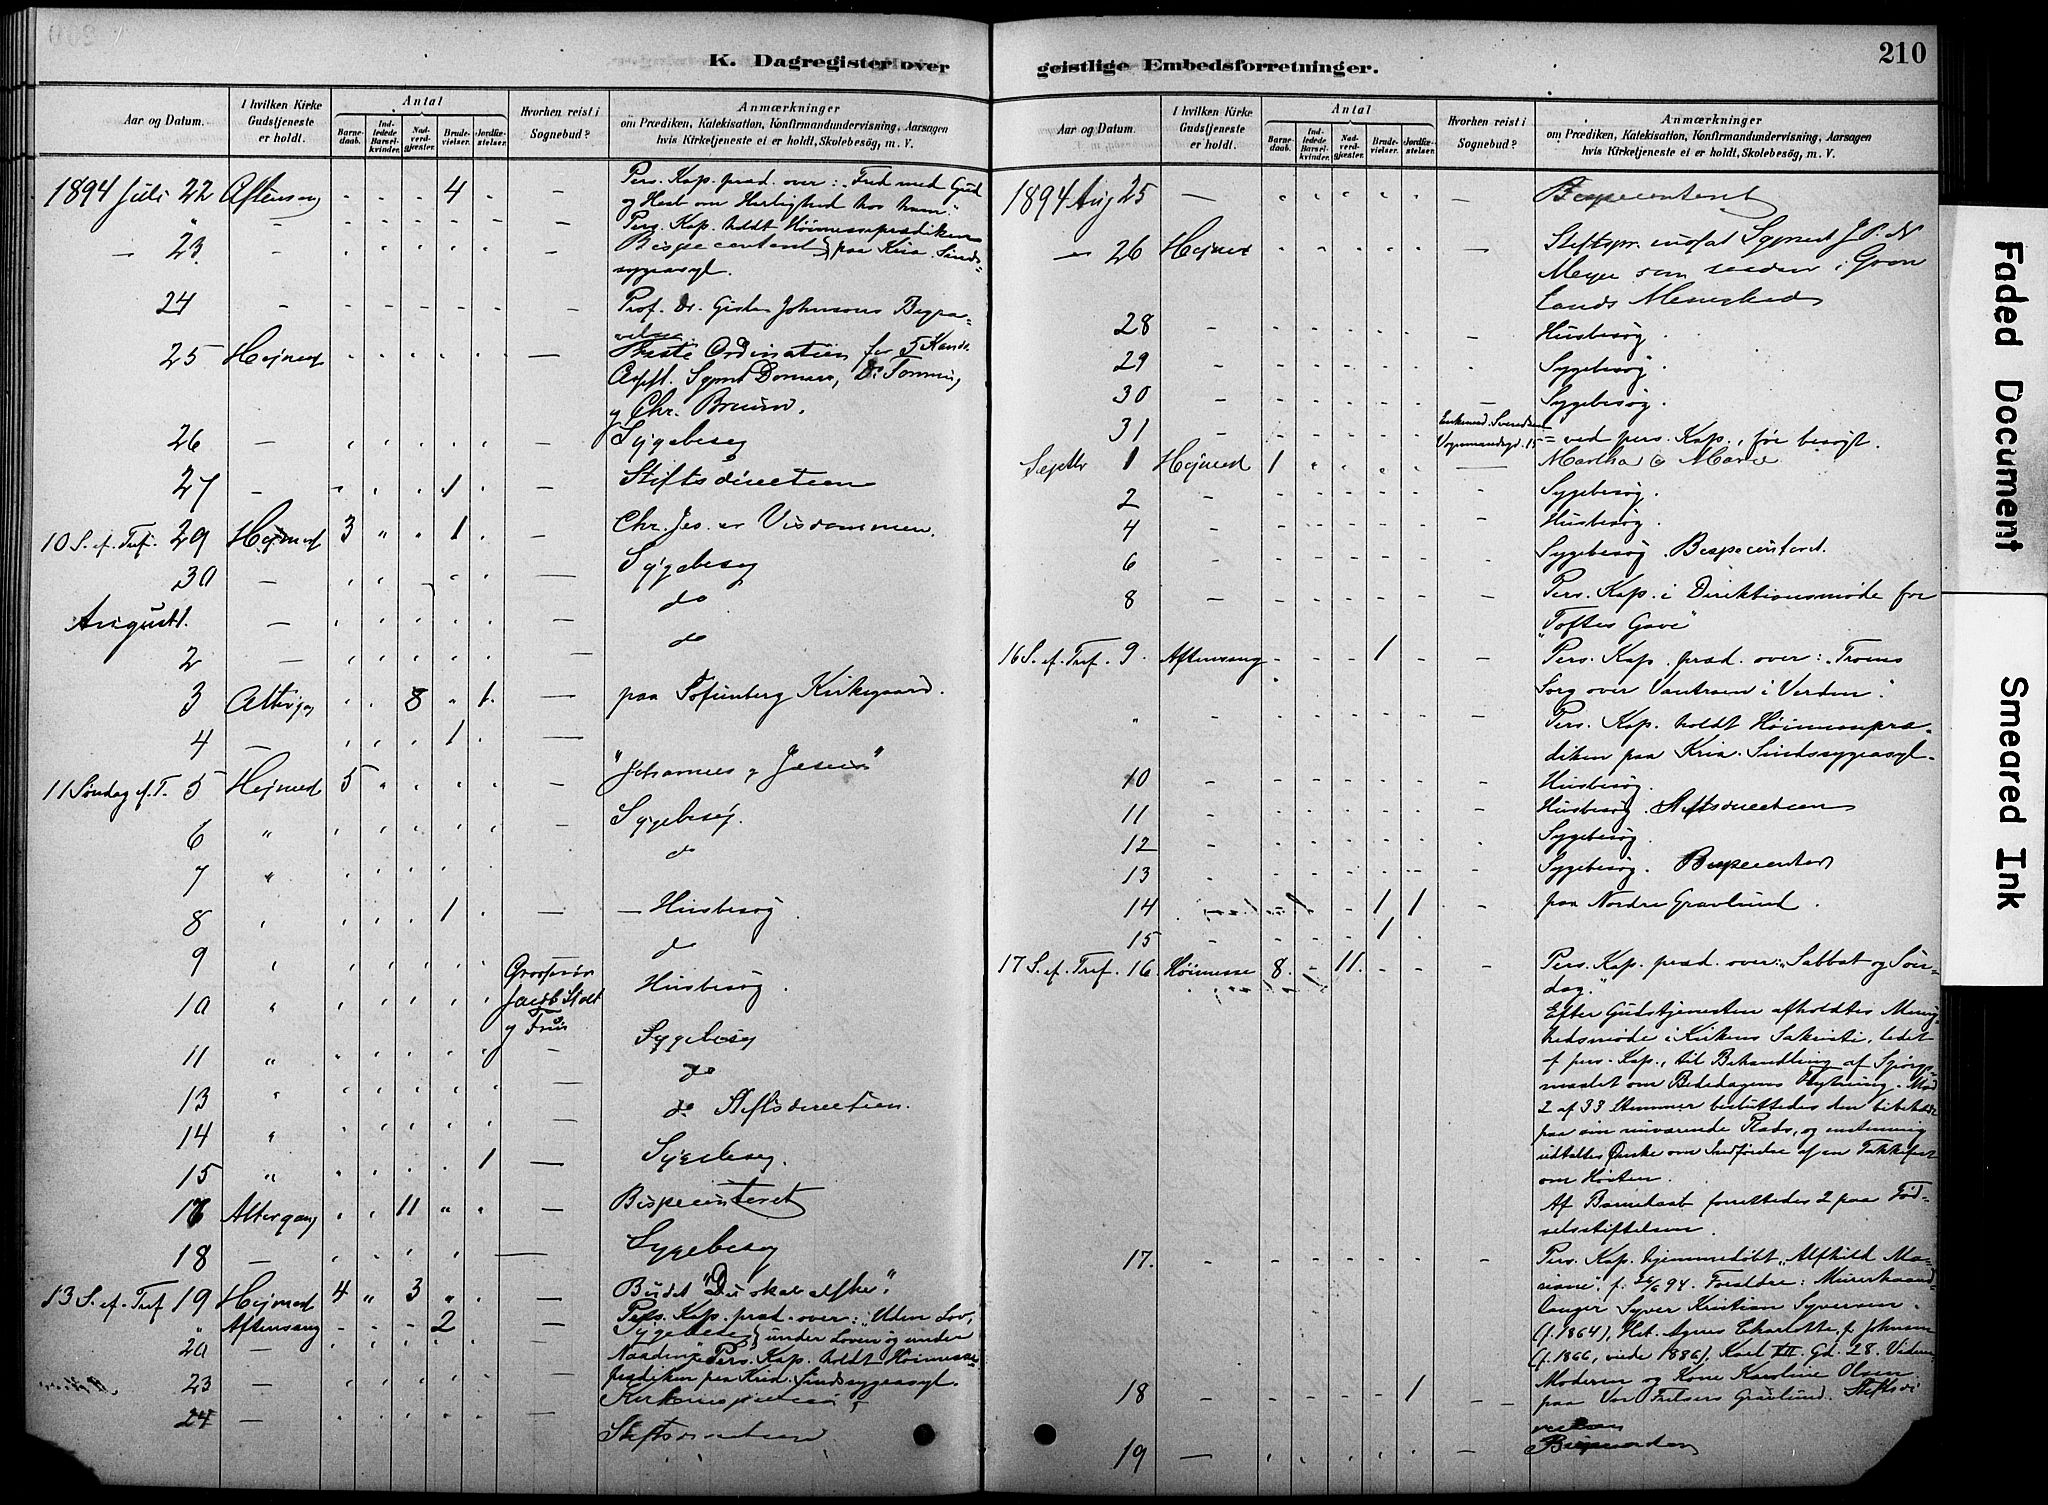 K. Dagregister over
Aar og Datum.
I hvilken Kirke Gudstjeneste er holdt.
Antal
Barnedaab.
Indledede Barselkvinder.
Nadverdgjester.
Brudevielser.
Jordfæstelser.
Hvorhen reist i Sognebud?
Anmærkninger
om Prædiken, Katekisation, Konfirmandundervisning, Aarsagen
hvis Kirketjeneste ei er holdt, Skolebesøg, m. V.
1894 Juli 22 Aftensang 4 Pers. Kap. præd. over: "Fred med Gud
og Haab om Herlighed hos ham."
Pers. Kap. holdt Høimesseprædiken
23 Bispecontoret paa Kria. Sinds-
sygeasyl.
24 Prof. Dr. Gisle Johnsons Begra-
velse
25 Hojmes Ordination for
Chr. Bruun.
26 Sygebesøg
27 1 Stiftsdirectien
10 S. ef. Tref. 29 Hojmes 3 1 Chr. Jes. er Visdommen.
30 Sygebesøg
August 1. do
2 do
3 Alterg 8 1 paa Sofienberg Kirkegaard.
4 1
11 Søndag ef. T. 5 Hojmes 5 "Johannes og Jesus"
6 Sygebesøg.
7 do
8 1 Husbesøg
9 do
10 Jacob Stolt Husbesøg.
og Frue
11 Sygebesøg
13 do
14 do Stiftsdirectien.
15 1 Sygebesøg.
16 Altergang 11 Bispecontoret
18 Sygebesøg
13 S. ef. Tref 19 Hojmes 4 3 Budet "Du skal elske".
Aftensang 2 Pers. Kap. præd. over: "Uden Lov,
20 Sygebesøg under Loven og under
Naaden." Pers. Kap. holdt Høimesse-
23 prædiken paa Krist. Sindssygeasyl.
24 Stiftsdirectien
geistlige Embedsforretninger.
210
Aar og Datum.
I hvilken Kirke Gudstjeneste er holdt.
Antal
Barnedaab.
Indledede Barselkvinder.
Nadverdgjester.
Brudevielser.
Jordfæstelser.
Hvorhen reist i Sognebud?
Anmærkninger
om Prædiken, Katekisation, Konfirmandundervisning, Aarsagen
hvis Kirketjeneste ei er holdt, Skolebesøg, m. V.
1894 Aug 25 Bispecontoret
26 Hojmes Stiftspr. indsat Sogneprest J. P. N.
Meyer som residerende i Grøn
lands Menighed
28 Husbesøg.
29 Sygebesøg.
30 Sygebesøg.
31 Enkemad. Svendsen
Vognmandsgd. 15 ved pers. Kap., før besøgt.
Septbr 1 Hojmes 1 Martha & Maria
2 Sygebesøg.
4 Husbesøg.
6 Sygebesøg. Bispecontoret.
8 Pers. Kap. i Direktionsmøde for
"Toftes Gave"
16 S. ef. Tref. 9. Aftensang 1 Pers. Kap. præd. over: "Troens
Sorg over Vantroen i Verden."
Pers. Kap. holdt Høimessepræ-
diken paa Kria. Sindssygeasyl.
10 Husbesøg.
11 Husbesøg. Stiftsdirectien
12 Sygebesøg.
13 Sygebesøg. Bispecontoret
14 1 1 paa Nordre Gravlund.
15 1
17 S. ef. Tref. 16. Høimesse 8. 11. Pers. Kap. præd. over: "Sabbat og Søn-
dag."
Efter Gudstjenesten afholdtes Menig-
hedsmøde i Kirkens Sakristi, ledet
af pers. Kap., til Behandling af Spørgs-
maalet om Bededagens Flytning. Mod
2 af 33 Stemmer besluttedes den bibeholdt
paa sin nuværende Plads, og enstemmig
udtaltes Ønske om Indførelse af en Takkefest
om Høsten.
Af Barnedaab forrettedes 2 paa Fød-
selsstiftelsen.
17. Pers. Kap. hjemmedøbt "Alfhild Ma-
riane", f. /94. Forældre: Murerhaand-
langer Syver Kristian Syversen
(f. 1864), Hst. Agnes Charlotte f. Johnsen
(f. 1866, viede 1886). Karl XII. Gd. 28. Vidner:
Moderen og Kone Karoline Olsen
18 1 paa Vor Frelsers Gravlund. Stiftsdi
rectien
19
Faded Document
Smeared Ink